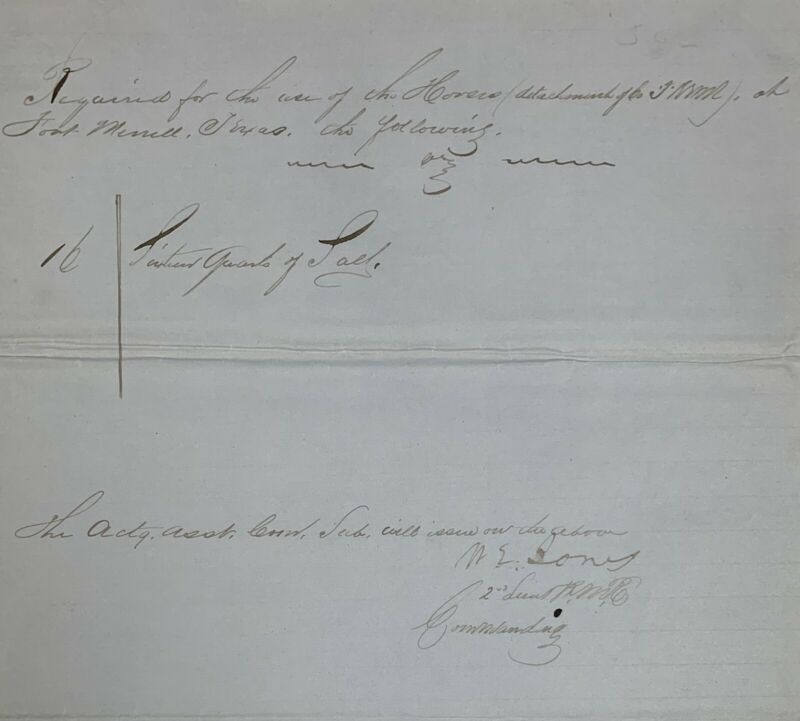 Required for the use of the Horses (detachment of Co I. RMR). at
Fort Merrill, Texas, the following,
viz
16 Sixteen Quarts of Salt.
The Actg. Asst. Com. Sub. will issue on the above
W. E. Jones
2nd Lieut R.M.R.
Commanding